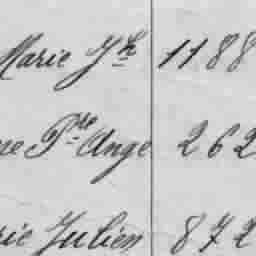 Marie Jh 1188
ne Pre Ange 262
rie Julien 872